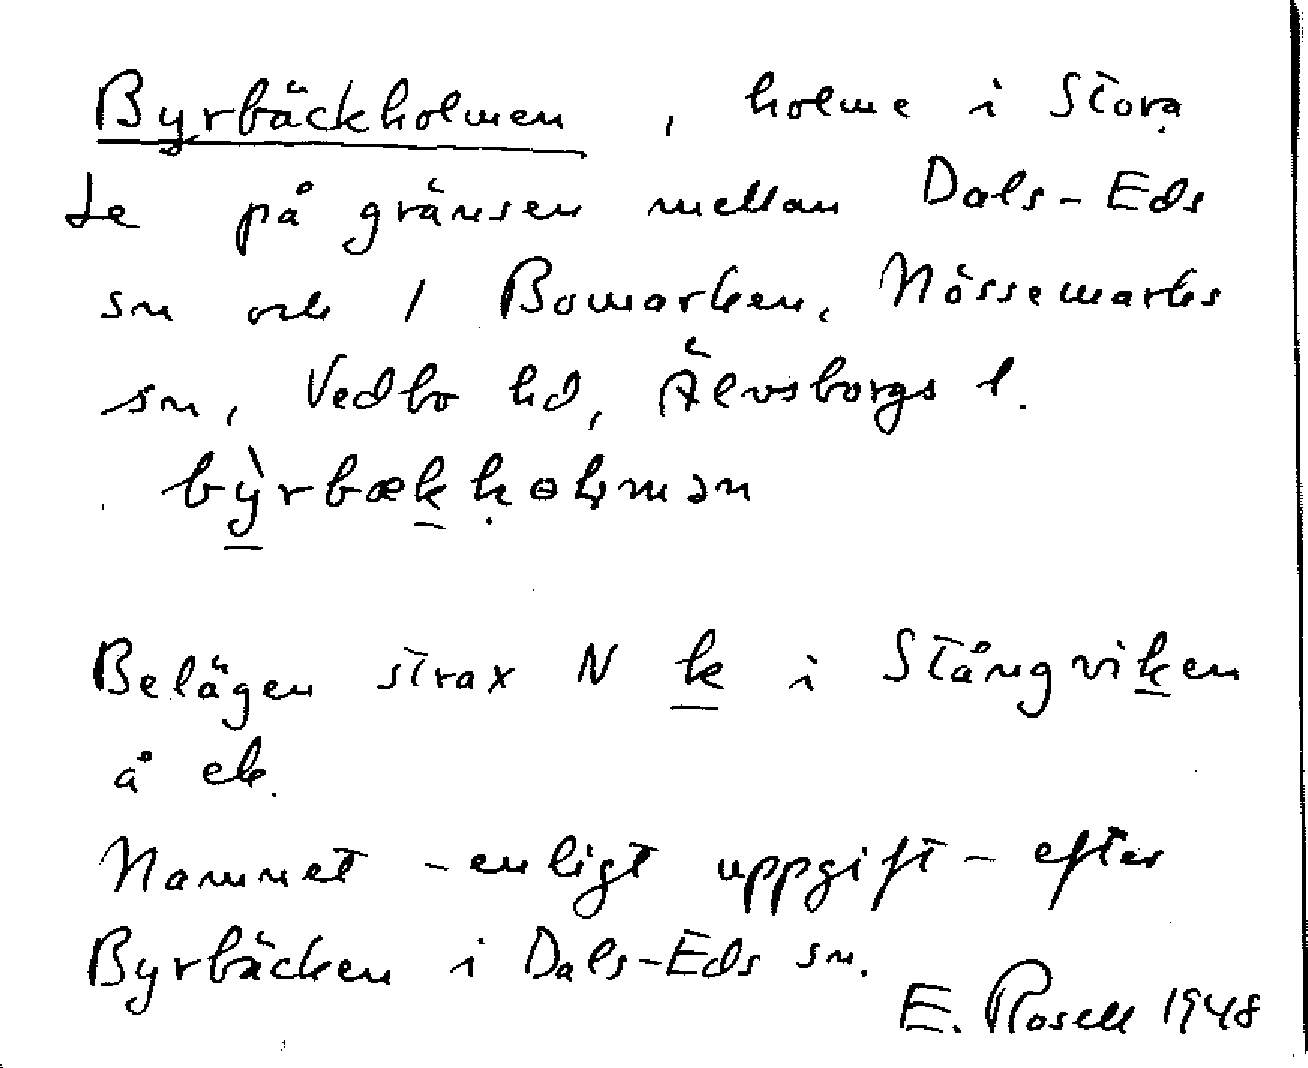 Byrbäckholmen, holme i Stora
Le på gränsen mellan Dals-Eds
sn och 1 Bomarken, Nössemarks
sn, Vedbo hd, Älvsborgs l.
bỳrbækkɵlmən
Belägen strax N k i Stångviken
å ek.
Namnet - enligt uppgift - efter
Byrbäcken i Dals-Eds sn.
E. Rosell 1948